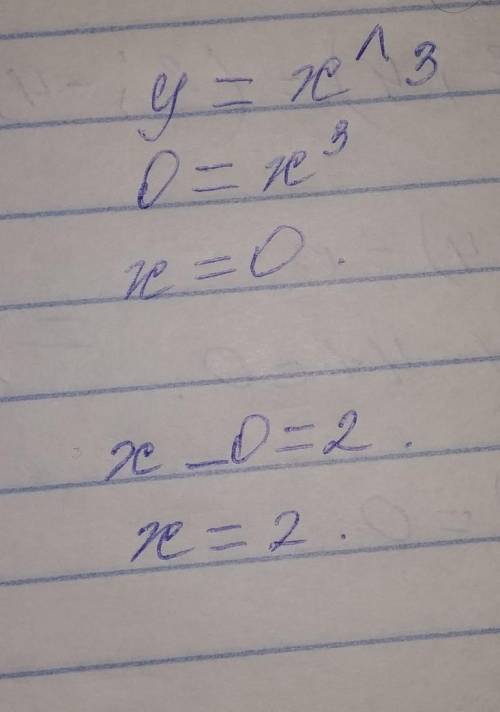 y = x ^ 3
0 = x³
x = 0 .
x _ 0 = 2 .
x = 2 .